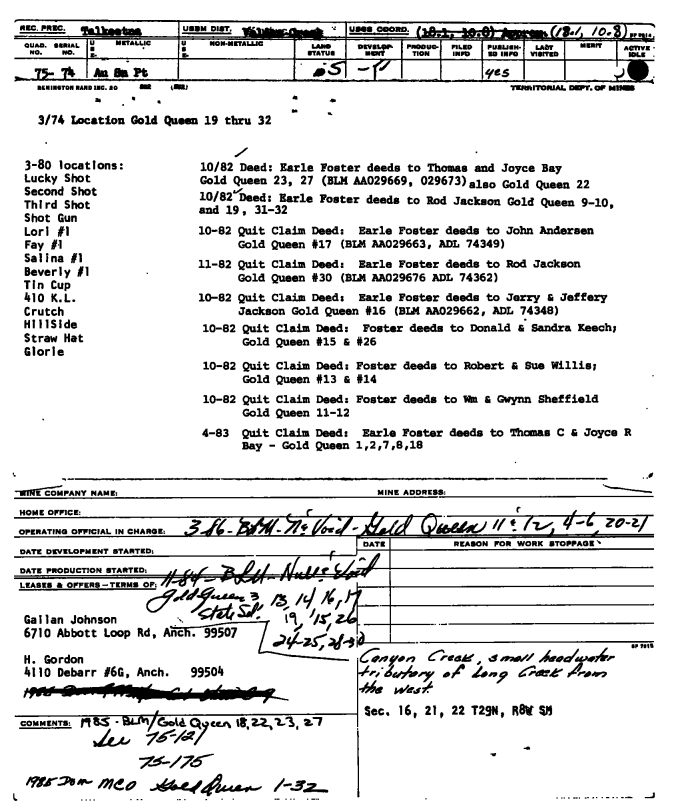 REC. PREC. Talkeetna USBM DIST. USGS COORD. (18.1, 10.8) Approx. (18.1, 10.8)
QUAD. NO. SERIAL NO. METALLIC NON-METALLIC LAND STATUS DEVELOPMENT PRODUCTION FILED INFO PUBLISHED INFO LAST VISITED MERIT ACTIVE IDLE
75- 74 Au Sn Pt OS yes
REMINGTON RAND INC. SO TERRITORIAL DEPT. OF MINES
3/74 Location Gold Queen 19 thru 32
3-80 locations:
Lucky Shot
Second Shot
Third Shot
Shot Gun
Lori #1
Fay #1
Salina #1
Beverly #1
Tin Cup
410 K.L.
Crutch
HillSide
Straw Hat
Glorie
10/82 Deed: Earle Foster deeds to Thomas and Joyce Bay
Gold Queen 23, 27 (BLM AA029669, 029673) also Gold Queen 22
10/82 Deed: Earle Foster deeds to Rod Jackson Gold Queen 9-10,
and 19, 31-32
10-82 Quit Claim Deed: Earle Foster deeds to John Andersen
Gold Queen #17 (BLM AA029663, ADL 74349)
11-82 Quit Claim Deed: Earle Foster deeds to Rod Jackson
Gold Queen #30 (BLM AA029676 ADL 74362)
10-82 Quit Claim Deed: Earle Foster deeds to Jerry & Jeffery
Jackson Gold Queen #16 (BLM AA029662, ADL 74348)
10-82 Quit Claim Deed: Foster deeds to Donald & Sandra Keech;
Gold Queen #15 & #26
10-82 Quit Claim Deed: Foster deeds to Robert & Sue Willis;
Gold Queen #13 & #14
10-82 Quit Claim Deed: Foster deeds to Wm & Gwynn Sheffield
Gold Queen 11-12
4-83 Quit Claim Deed: Earle Foster deeds to Thomas C & Joyce R
Bay - Gold Queen 1,2,7,8,18
MINE COMPANY NAME: MINE ADDRESS:
HOME OFFICE:
OPERATING OFFICIAL IN CHARGE: 3-86-BLM-N&Void-Gold Queen 11 & 12, 4-6, 20-21
DATE DEVELOPMENT STARTED:
DATE REASON FOR WORK STOPPAGE
DATE PRODUCTION STARTED: 11-84-BLM-Null & Void
LEASES & OFFERS-TERMS OF: Gold Queen 3, 13, 14, 16, 17
State Sel. 19, 15, 26
24-25, 28-30
Gallan Johnson
6710 Abbott Loop Rd, Anch. 99507
H. Gordon
4110 Debarr #6G, Anch. 99504
Canyon Creek, small headwater
tributary of Long Creek from
the west.
Sec. 16, 21, 22 T29N, R8W SM
COMMENTS: 1985-BLM/Gold Queen 18,22,23,27
See 75-121
75-175
1985 Dom MCO Gold Queen 1-32